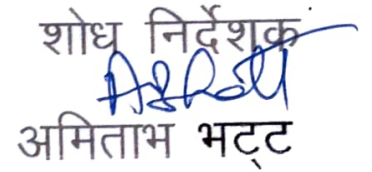 शोध निर्देशक
अमिताभ भट्ट